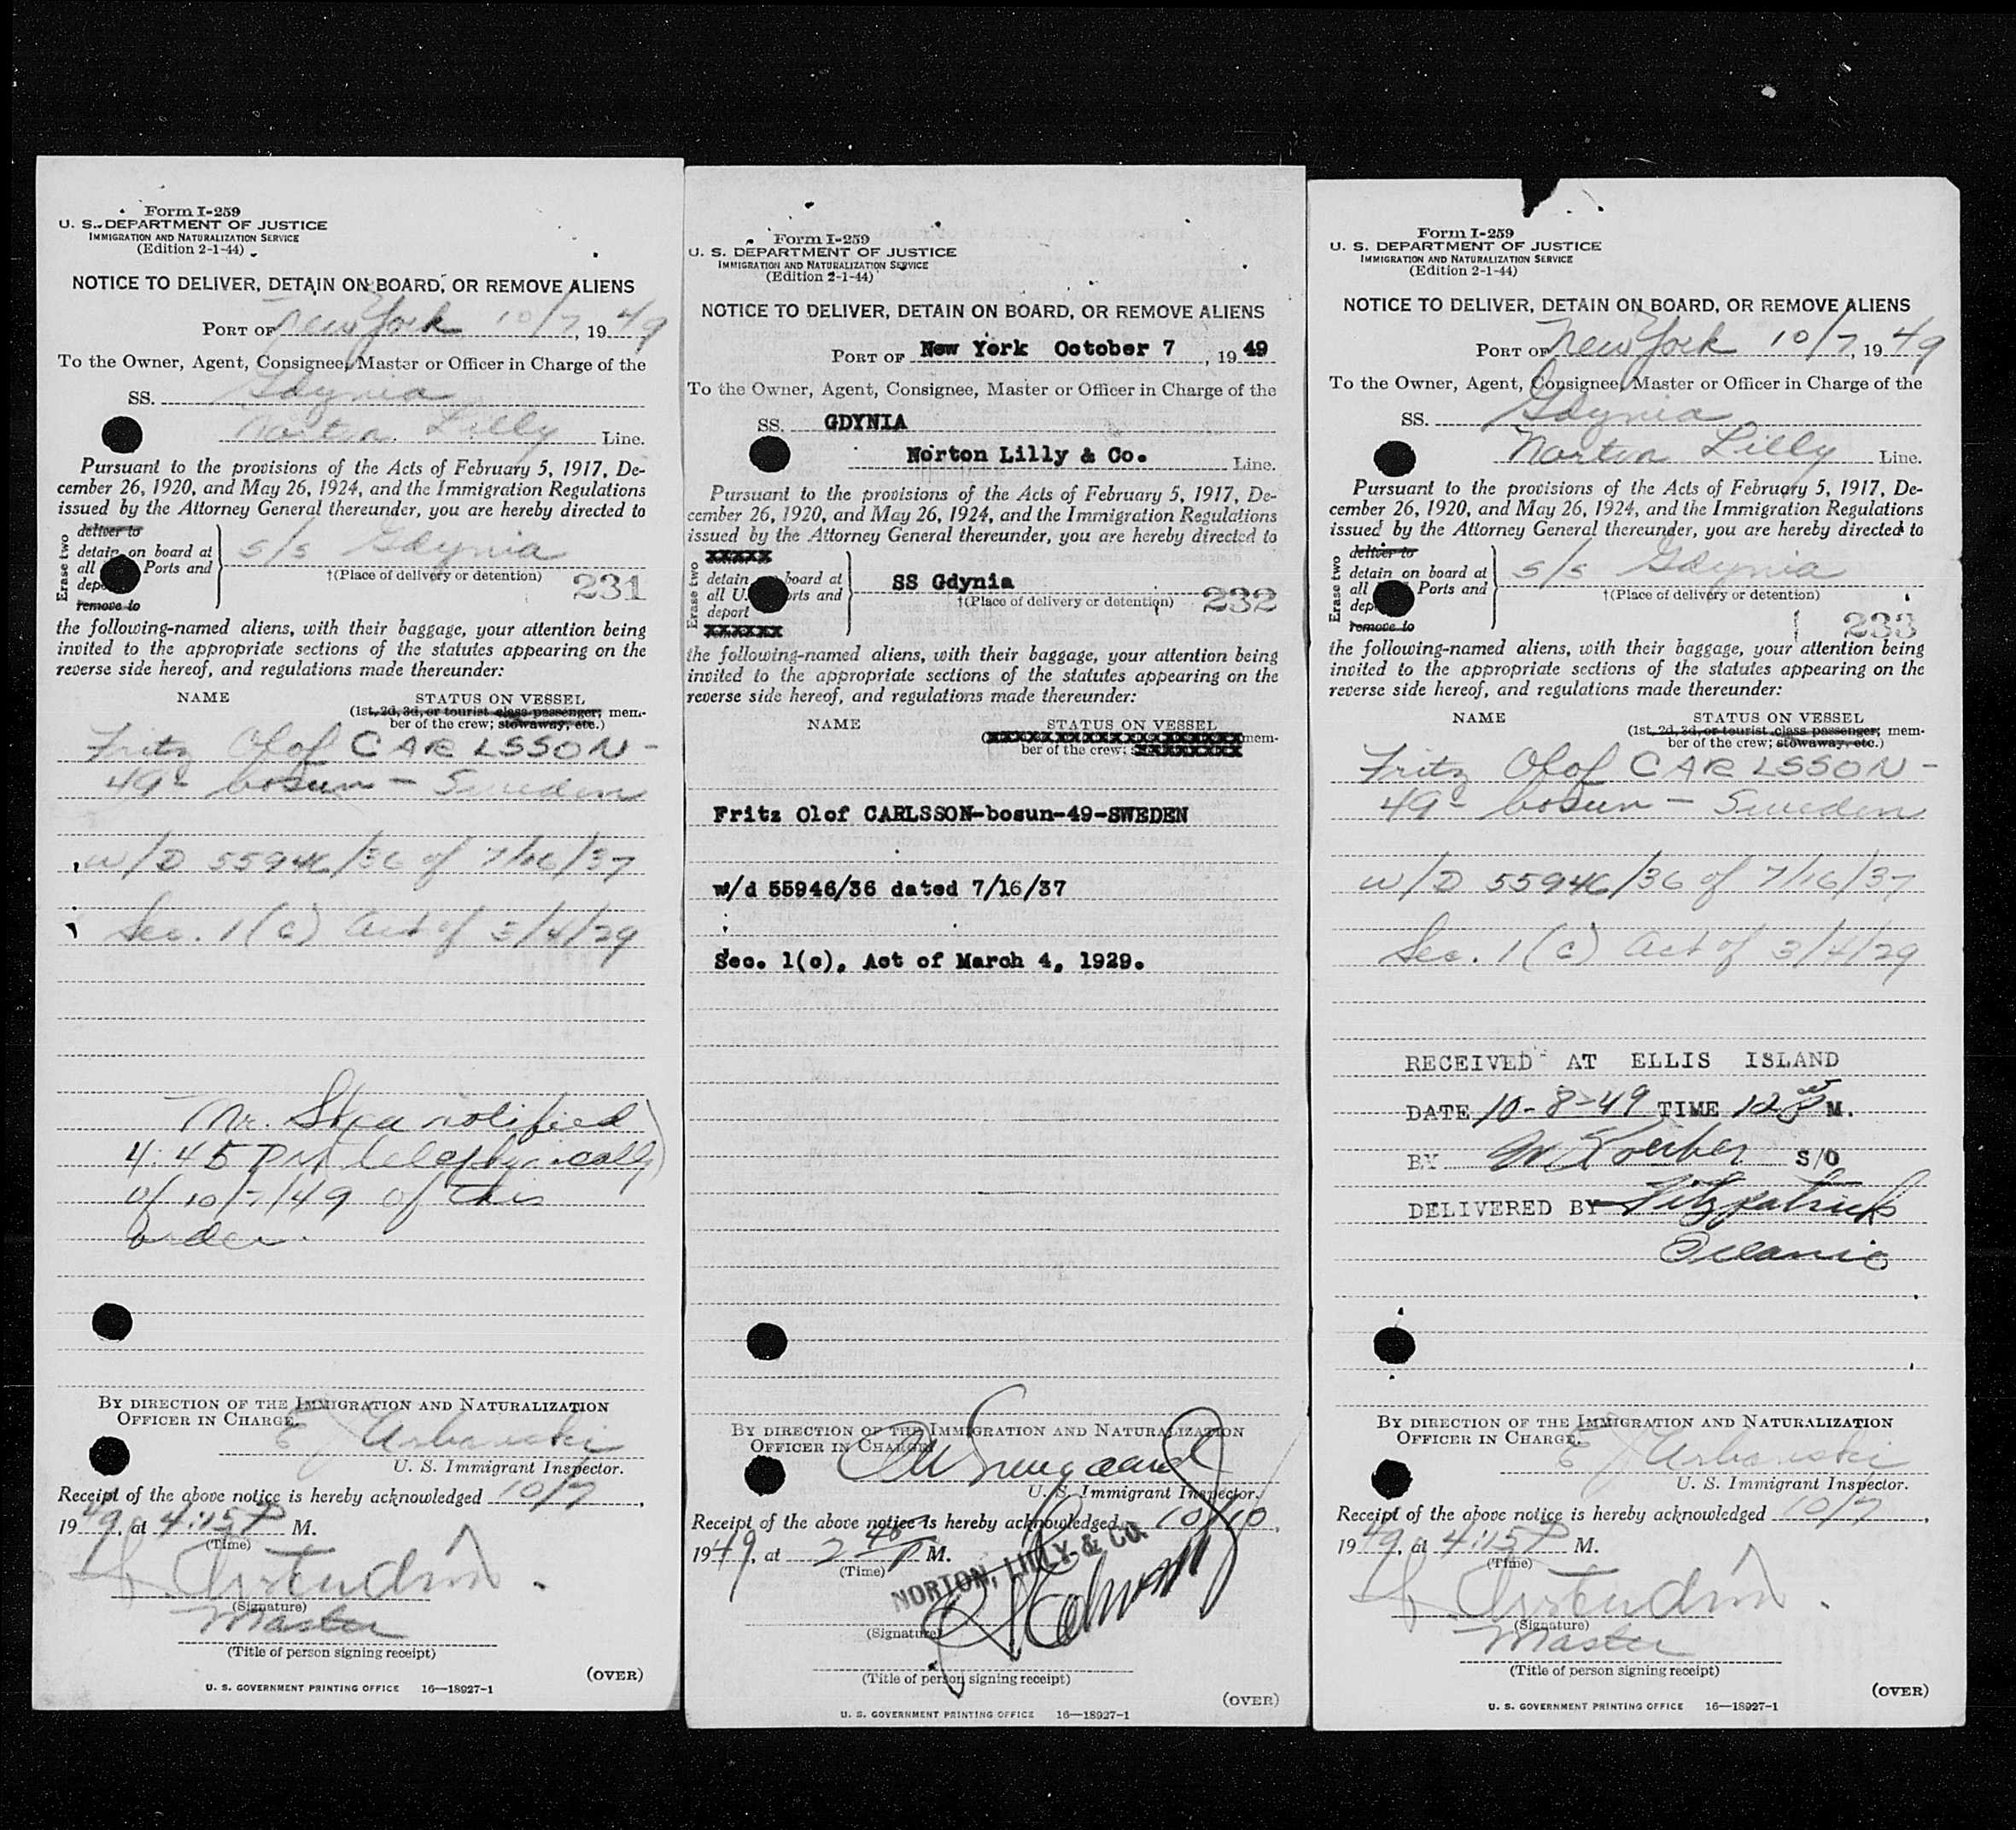 Form I-259
U. S. DEPARTMENT OF JUSTICE
IMMIGRATION AND NATURALIZATION SERVICE
(Edition 2-1-44)
NOTICE TO DELIVER, DETAIN ON BOARD, OR REMOVE ALIENS
PORT OF New York 10/7, 1949
To the Owner, Agent, Consignee, Master or Officer in Charge of the
SS. Gdynia
Norton Lilly Line.
Pursuant to the provisions of the Acts of February 5, 1917, De-
cember 26, 1920, and May 26, 1924, and the Immigration Regulations
issued by the Attorney General thereunder, you are hereby directed to
Erase two
deliver to
detain on board at
all Ports and
dep
remove to
s/s Gdynia
†(Place of delivery or detention)
231
the following-named aliens, with their baggage, your attention being
invited to the appropriate sections of the statutes appearing on the
reverse side hereof, and regulations made thereunder:
NAME STATUS ON VESSEL
(1st, 2d, 3d, or tourist class passenger; mem-
ber of the crew; stowaway, etc.)
Fritz Olof CARLSSON -
49 bosun - Sweden
w/D 55946/36 of 7/16/37
Sec. 1(c) Act of 3/4/29
Mr. Shea notified
4:45 PM telephonically
of 10/7/49 of this
order.
BY DIRECTION OF THE IMMIGRATION AND NATURALIZATION
OFFICER IN CHARGE.
E J Urbanski
U. S. Immigrant Inspector.
Receipt of the above notice is hereby acknowledged 10/7,
1949, at 4:15 P M.
(Time)
(Signature)
Master
(Title of person signing receipt)
(OVER)
U. S. GOVERNMENT PRINTING OFFICE 16—18927-1
Form I-259
U. S. DEPARTMENT OF JUSTICE
IMMIGRATION AND NATURALIZATION SERVICE
(Edition 2-1-44)
NOTICE TO DELIVER, DETAIN ON BOARD, OR REMOVE ALIENS
PORT OF New York October 7, 1949
To the Owner, Agent, Consignee, Master or Officer in Charge of the
SS. GDYNIA
Norton Lilly & Co. Line.
Pursuant to the provisions of the Acts of February 5, 1917, De-
cember 26, 1920, and May 26, 1924, and the Immigration Regulations
issued by the Attorney General thereunder, you are hereby directed to
Erase two
xxxxx
detain board at
all U. rts and
deport
xxxxxx
SS Gdynia
†(Place of delivery or detention)
232
the following-named aliens, with their baggage, your attention being
invited to the appropriate sections of the statutes appearing on the
reverse side hereof, and regulations made thereunder:
NAME STATUS ON VESSEL
mem-
ber of the crew;
Fritz Olof CARLSSON-bosun-49-SWEDEN
w/d 55946/36 dated 7/16/37
Sec. 1(c), Act of March 4, 1929.
BY DIRECTION OF THE IMMIGRATION AND NATURALIZATION
OFFICER IN CHARGE
U. S. Immigrant Inspector.
Receipt of the above notice is hereby acknowledged 10/10,
1949, at 2 40 P M.
(Time)
NORTON, LILLY & CO.
(Signature)
(Title of person signing receipt)
(OVER)
U. S. GOVERNMENT PRINTING OFFICE 16—18927-1
Form I-259
U. S. DEPARTMENT OF JUSTICE
IMMIGRATION AND NATURALIZATION SERVICE
(Edition 2-1-44)
NOTICE TO DELIVER, DETAIN ON BOARD, OR REMOVE ALIENS
PORT OF New York 10/7, 1949
To the Owner, Agent, Consignee, Master or Officer in Charge of the
SS. Gdynia
Norton Lilly Line.
Pursuant to the provisions of the Acts of February 5, 1917, De-
cember 26, 1920, and May 26, 1924, and the Immigration Regulations
issued by the Attorney General thereunder, you are hereby directed to
Erase two
deliver to
detain on board at
all Ports and
dep
remove to
s/s Gdynia
†(Place of delivery or detention)
233
the following-named aliens, with their baggage, your attention being
invited to the appropriate sections of the statutes appearing on the
reverse side hereof, and regulations made thereunder:
NAME STATUS ON VESSEL
(1st, 2d, 3d, or tourist class passenger; mem-
ber of the crew; stowaway, etc.)
Fritz Olof CARLSSON -
49 bosun - Sweden
w/D 55946/36 of 7/16/37
Sec. 1(c) Act of 3/4/29
RECEIVED AT ELLIS ISLAND
DATE 10-8-49 TIME 12 M.
BY S/O
DELIVERED BY Fitzpatrick
Oceanic
BY DIRECTION OF THE IMMIGRATION AND NATURALIZATION
OFFICER IN CHARGE.
E J Urbanski
U. S. Immigrant Inspector.
Receipt of the above notice is hereby acknowledged 10/7,
1949, at 4:15 P M.
(Time)
(Signature)
Master
(Title of person signing receipt)
(OVER)
U. S. GOVERNMENT PRINTING OFFICE 16—18927-1